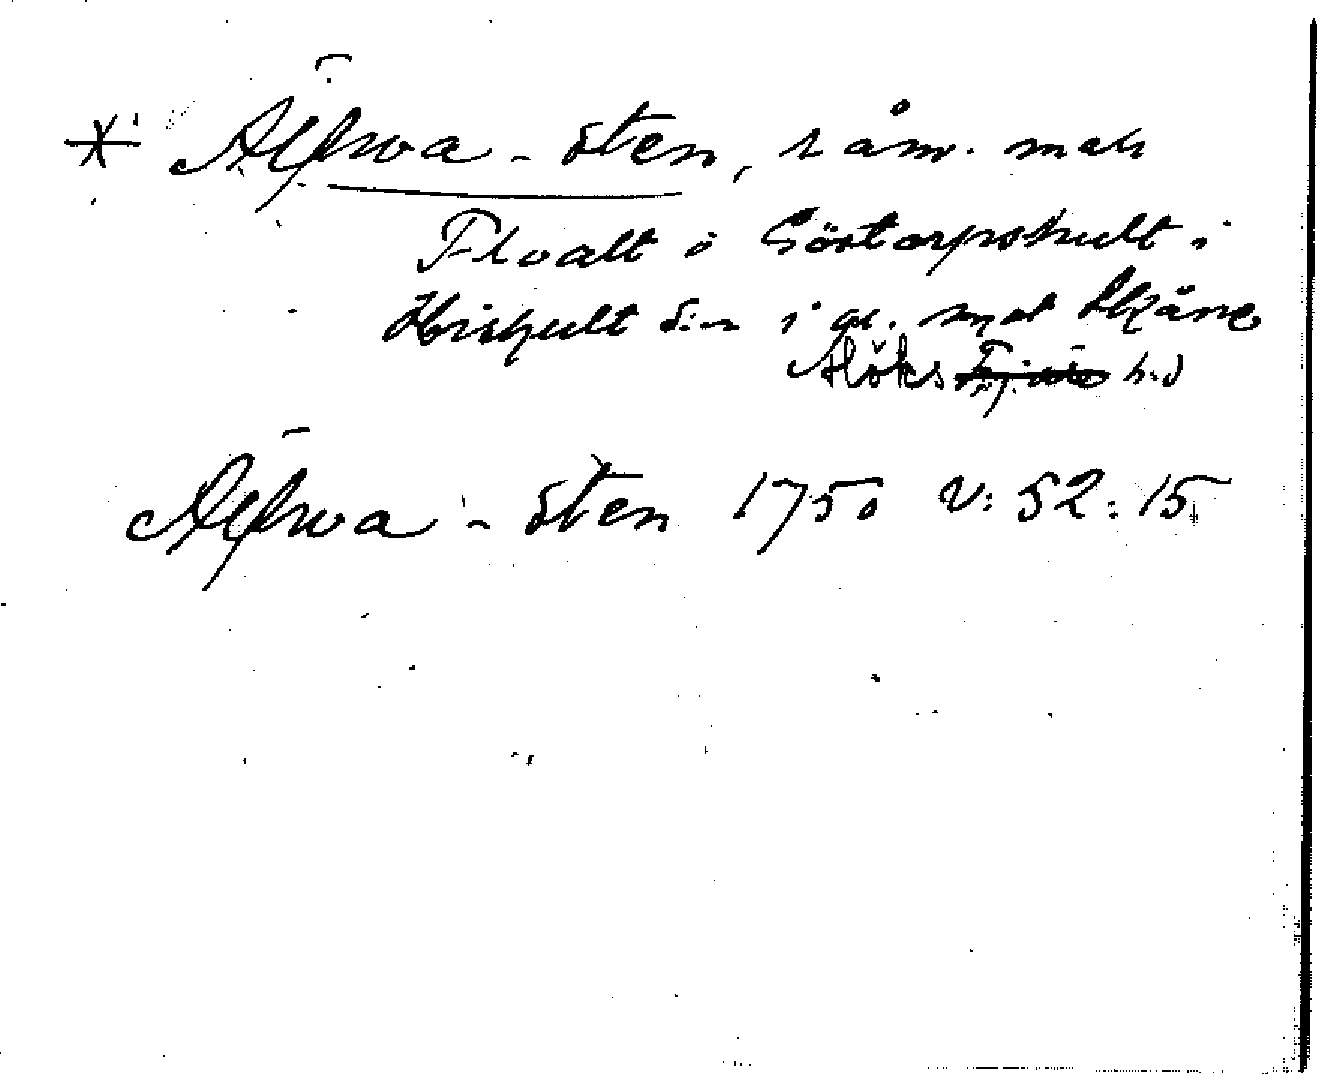 * Älfwa - sten, råm. mell
Flvalt o Göstorpshult i
Hishult s:n i gr. mot Skåne
Höks h:d
Älfwa - sten 1750 V: 52: 15